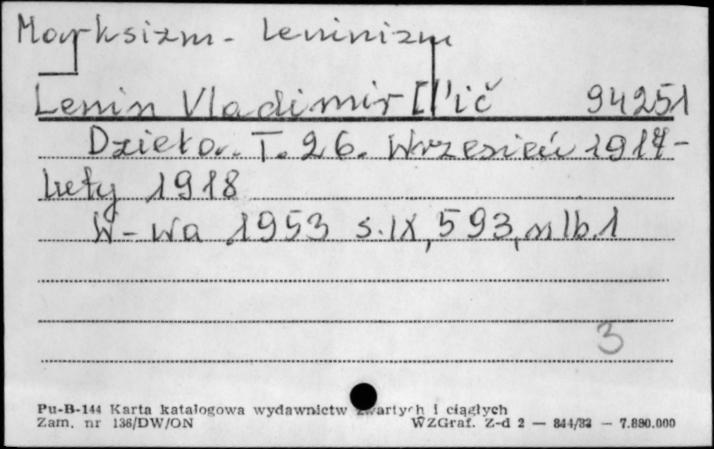 Marksizm - Leninizm
Lenin Vladimir Il'ič 94251
Dzieła. T. 26. Wrzesień 1917 -
luty 1918
W-wa 1953 s. IX, 593, nlb. 1
3
Pu-B-144 Karta katalogowa wydawnictw zwartych i ciągłych
Zam. nr 136/DW/ON WZGraf. Z-d 2 — 844/82 — 7.880.000